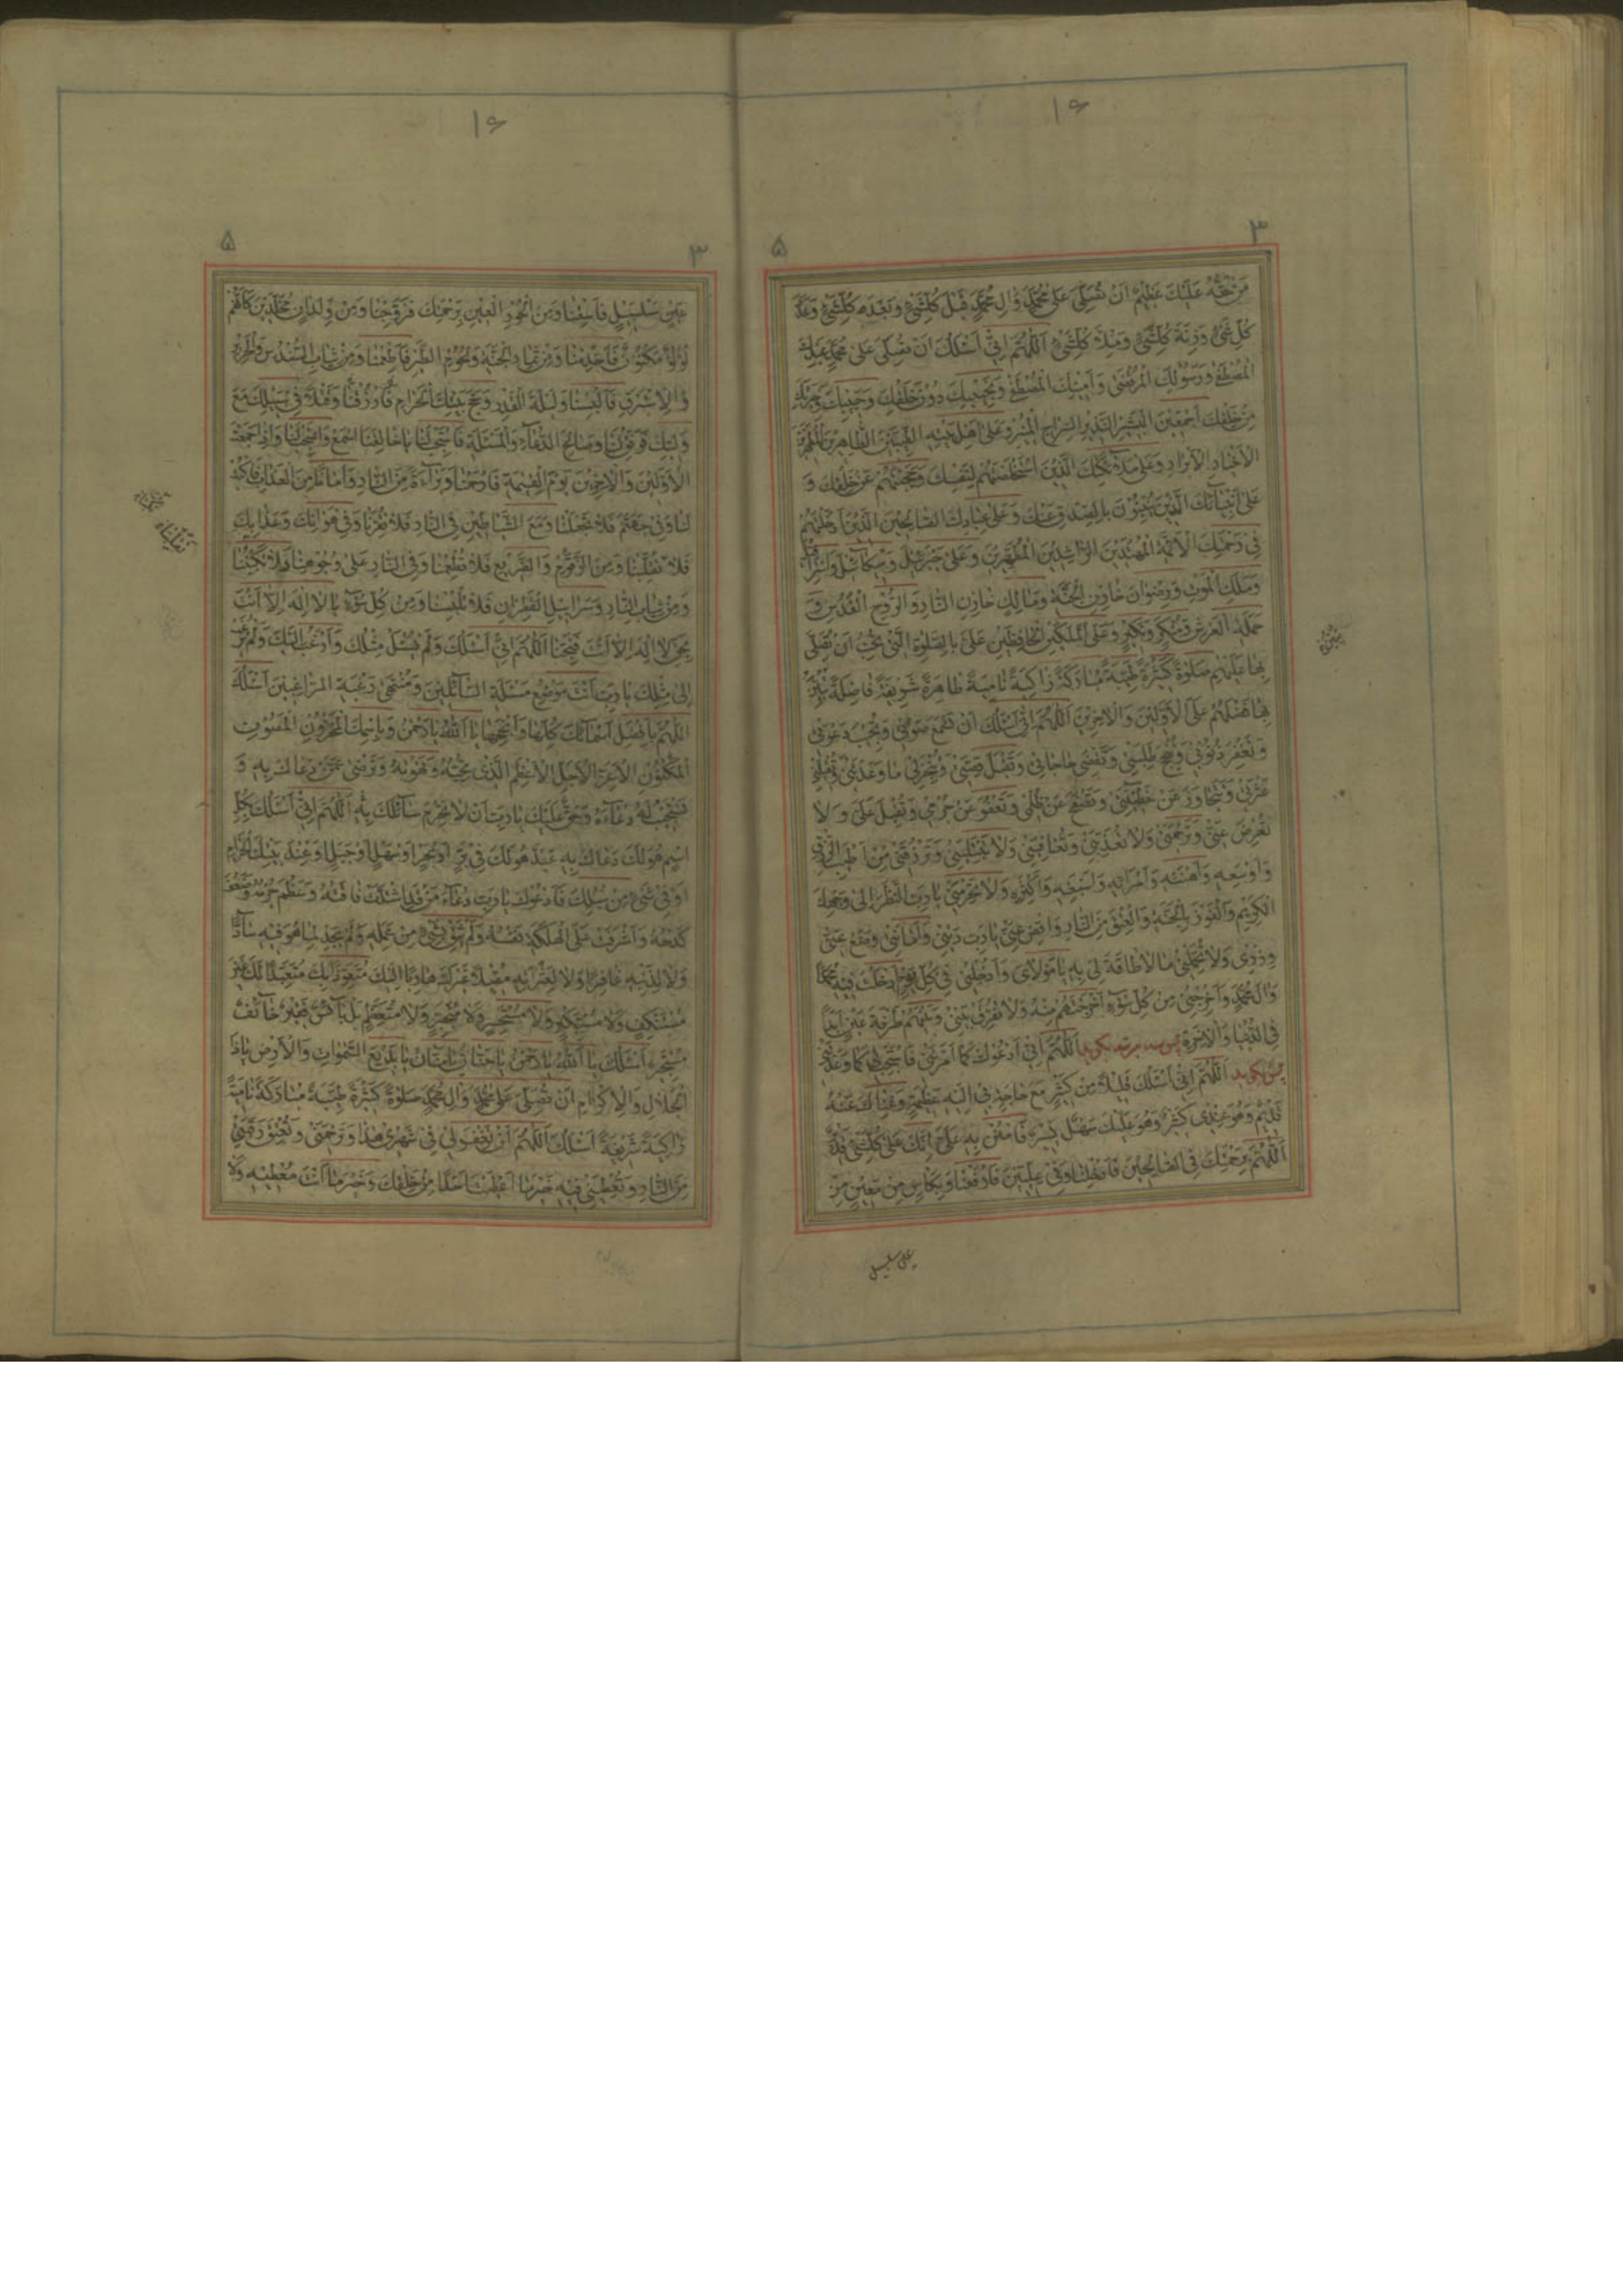 ۱۶
۳
۵
مَنْ حَقُّهُ عَلَيْكَ عَظِيمٌ اَنْ تُصَلِّيَ عَلٰى مُحَمَّدٍ وَاٰلِ مُحَمَّدٍ قَبْلَ كُلِّشَيْءٍ وَبَعْدَه كُلِّشَيْءٍ وَعَدَدَ
كُلِّ شَيْءٍ وَزِنَةَ كُلِّشَيْءٍ وَمِلْاَ كُلِّشَيْءٍ اَللّٰهُمَّ اِنّي اَسْئَلُكَ اَنْ تُصَلِّيَ عَلٰى مُحَمَّدٍ عَبْدِكَ
الْمُصْطَفٰى وَرَسُولِكَ الْمُرْتَضٰى وَاَمينِكَ الْمُصْطَفٰى وَنَجيبِكَ دُونَ خَلْقِكَ وَحَبيبِكَ وَخِيَرَتِكَ
مِنْ خَلْقِكَ اَجْمَعينَ الْبَشيرِ النَّذيرِ السِّراجِ الْمُنيرِ وَعَلٰى اَهْلِ بَيْتِهِ الطَّيِّبينَ الطّاهِرينَ الْمُطَهَّرينَ
الْاَخْيارِ الْاَبْرارِ وَعَلٰى مَلاٰئِكَتِكَ الَّذينَ اسْتَخْلَصْتَهُمْ لِنَفْسِكَ وَحَجَبْتَهُمْ عَنْ خَلْقِكَ وَ
عَلٰى اَنْبِيائِكَ الَّذينَ يُنْبِئُونَ بِالصِّدْقِ عَنْكَ وَعَلٰى عِبادِكَ الصّالِحينَ الَّذينَ اَدْخَلْتَهُمْ
في رَحْمَتِكَ الْاَئِمَّةِ الْمُهْتَدينَ الرّاشِدينَ الْمُطَهَّرينَ وَعَلٰى جَبْرَئيلَ وَميكآئيلَ وَاِسْرافيلَ
وَمَلَكِ الْمَوْتِ وَرِضْوانَ خازِنِ الْجَنَّةِ وَمالِكٍ خازِنِ النّارِ وَالرُّوحِ الْقُدُسِ وَ
حَمَلَةِ الْعَرْشِ وَمُنْكَرٍ وَنَكيرٍ وَعَلَى الْمَلَكَيْنِ الْحافِظَيْنِ عَلَيَّ بِالصَّلوٰةِ الَّتي تُحِبُّ اَنْ تُصَلِّيَ
بِها عَلَيْهِمْ صَلوٰةً كَثيرَةً طَيِّبَةً مُبارَكَةً زاكِيَةً نامِيَةً طاهِرَةً شَريفَةً فاضِلَةً تُبَيِّنُ
بِها فَضْلَهُمْ عَلَى الْاَوَّلينَ وَالْاٰخِرينَ اَللّٰهُمَّ اِنّي اَسْئَلُكَ اَنْ تَسْمَعَ صَوْتي وَتُجيبَ دَعْوَتي
وَتَغْفِرَ ذُنُوبي وَتُنْجِحَ طَلِبَتي وَتَقْضِيَ حاجاتي وَتَقْبَلَ قِصَّتي وَتُنْجِزَ لي ما وَعَدْتَني وَتُقيلَني
عَثْرَتي وَتَتَجاوَزَ عَنْ خَطيئَتي وَتَصْفَحَ عَنْ ظُلْمي وَتَعْفُوَ عَنْ جُرْمي وَتُقْبِلَ عَلَيَّ وَلاٰ
تُعْرِضَ عَنّي وَتَرْحَمَني وَلاٰ تُعَذِّبَني وَتُعافِيَني وَلاٰ تَبْتَلِيَني وَتَرْزُقَني مِنْ اَطْيَبِ الرِّزْقِ
وَاَوْسَعِهِ وَاَهْنَئِهِ وَاَمْرَئِهِ وَاَسْبَغِهِ وَاَكْثَرِهِ وَلاٰ تَحْرِمْني يا رَبِّ النَّظَرَ اِلٰى وَجْهِكَ
الْكَريمِ وَالْفَوْزَ بِالْجَنَّةِ وَالْعِتْقَ مِنَ النّارِ وَاقْضِ عَنّي يا رَبِّ دَيْني وَاَمانَتي وَضَعْ عَنّي
وِزْري وَلاٰ تُحَمِّلْني ما لاٰ طاقَةَ لي بِهِ يا مَوْلاٰيَ وَاَدْخِلْني في كُلِّ خَيْرٍ اَدْخَلْتَ فيهِ مُحَمَّدًا
وَاٰلَ مُحَمَّدٍ وَاَخْرِجْني مِنْ كُلِّ سُوٓءٍ اَخْرَجْتَهُمْ مِنْهُ وَلاٰ تُفَرِّقْ بَيْني وَبَيْنَهُمْ طَرْفَةَ عَيْنٍ اَبَدًا
فِي الدُّنْيا وَالْاٰخِرَةِ پس سه مرتبه بكويد اَللّٰهُمَّ اِنّي اَدْعُوكَ كَما اَمَرْتَني فَاسْتَجِبْ لي كَما وَعَدْتَني
پس بكويد اَللّٰهُمَّ اِنّي اَسْئَلُكَ قَليلاً مِنْ كَثيرٍ مَعَ حاجَةٍ بي اِلَيْهِ عَظيمَةٍ وَغِناكَ عَنْهُ
قَديمٌ وَهُوَ عِنْدي كَثيرٌ وَهُوَ عَلَيْكَ سَهْلٌ يَسيرٌ فَامْنُنْ بِهِ عَلَيَّ اِنَّكَ عَلٰى كُلِّشَيْءٍ قَديرٌ
اَللّٰهُمَّ بِرَحْمَتِكَ فِي الصّالِحينَ فَاَدْخِلْنا وَفي عِلِّيّينَ فَارْفَعْنا وَبِكَأْسٍ مِنْ مَعينٍ مِنْ
عين سلسبيل
۱۶
۳
۵
عَيْنٍ سَلْسَبيلٍ فَاسْقِنا وَمِنَ الْحُورِ الْعينِ بِرَحْمَتِكَ فَزَوِّجْنا وَمِنْ وِلْدانٍ مُخَلَّدينَ كَاَنَّهُمْ
لُؤْلُؤٌ مَكْنُونٌ فَاَخْدِمْنا وَمِنْ ثِمارِ الْجَنَّةِ وَلُحُومِ الطَّيْرِ فَاَطْعِمْنا وَمِنْ ثِيابِ السُّنْدُسِ وَالْحَريرِ
وَالْاِسْتَبْرَقِ فَاَلْبِسْنا وَلَيْلَةَ الْقَدْرِ وَحَجَّ بَيْتِكَ الْحَرامِ فَارْزُقْنا وَقَتْلاً في سَبيلِكَ مَعَ
وَلِيِّكَ فَوَفِّقْ لَنا وَصالِحَ الدُّعآءِ وَالْمَسْئَلَةِ فَاسْتَجِبْ لَنا يا خالِقَنَا اسْمَعْ وَاسْتَجِبْ لَنا وَاِذا جَمَعْتَ
الْاَوَّلينَ وَالْاٰخِرينَ يَوْمَ الْقِيٰمَةِ فَارْحَمْنا وَبَرآءَةً مِنَ النّارِ وَاَمانًا مِنَ الْعَذابِ فَاكْتُبْ
لَنا وَفي جَهَنَّمَ فَلاٰ تَجْعَلْنا وَمَعَ الشَّياطينِ فِي النّارِ فَلاٰ تَقْرِنّا وَفي هَوانِكَ وَعَذابِكَ
فَلاٰ تُقَلِّبْنا وَمِنَ الزَّقُّومِ وَالضَّريعِ فَلاٰ تُطْعِمْنا وَفِي النّارِ عَلٰى وُجُوهِنا فَلاٰ تَكُبَّنا
وَمِنْ ثِيابِ النّارِ وَسَرابيلِ الْقَطِرانِ فَلاٰ تُلْبِسْنا وَمِنْ كُلِّ سُوٓءٍ يا لاٰ اِلٰهَ اِلاّٰ اَنْتَ
بِحَقِّ لاٰ اِلٰهَ اِلاّٰ اَنْتَ فَنَجِّنا اَللّٰهُمَّ اِنّي اَسْئَلُكَ وَلَمْ يُسْئَلْ مِثْلُكَ وَاَرْغَبُ اِلَيْكَ وَلَمْ يُرْغَبْ
اِلٰى مِثْلِكَ يا رَبِّ اَنْتَ مَوْضِعُ مَسْئَلَةِ السّآئِلينَ وَمُنْتَهٰى رَغْبَةِ الرّاغِبينَ اَسْئَلُكَ
اللّٰهُمَّ بِاَفْضَلِ اَسْمآئِكَ كُلِّها وَاَنْجَحِها يا اَللّٰهُ يا رَحْمٰنُ وَبِاسْمِكَ الْمَخْزُونِ الْمَصُونِ
الْمَكْنُونِ الْاَعَزِّ الْاَجَلِّ الْاَعْظَمِ الَّذي تُحِبُّهُ وَتَهْوٰيهُ وَتَرْضٰى عَمَّنْ دَعاكَ بِهِ وَ
تَسْتَجيبُ لَهُ دُعآءَهُ وَحَقٌّ عَلَيْكَ يا رَبِّ اَنْ لاٰ تَحْرِمَ سآئِلَكَ بِهِ اَللّٰهُمَّ اِنّي اَسْئَلُكَ بِكُلِّ
اسْمٍ هُوَ لَكَ دَعاكَ بِهِ عَبْدٌ هُوَ لَكَ في بَرٍّ اَوْ بَحْرٍ اَوْ سَهْلٍ اَوْ جَبَلٍ اَوْ عِنْدَ بَيْتِكَ الْحَرامِ
اَوْ في شَيْءٍ مِنْ سُبُلِكَ فَاَدْعُوكَ يا رَبِّ دُعآءَ مَنْ قَدِ اشْتَدَّتْ فاقَتُهُ وَعَظُمَ جُرْمُهُ وَضَعُفَ
كَدْحُهُ وَاَشْرَفَتْ عَلَى الْهَلَكَةِ نَفْسُهُ وَلَمْ يَثِقْ بِشَيْءٍ مِنْ عَمَلِهِ وَلَمْ يَجِدْ لِما هُوَ فيهِ سآدًّا
وَلاٰ لِذَنْبِهِ غافِرًا وَلاٰ لِعَثْرَتِهِ مُقيلاً غَيْرَكَ هارِبًا اِلَيْكَ مُتَعَوِّذًا بِكَ مُتَعَبِّدًا لَكَ غَيْرَ
مُسْتَنْكِفٍ وَلاٰ مُسْتَكْبِرٍ وَلاٰ مُسْتَحْسِرٍ وَلاٰ مُتَجَبِّرٍ وَلاٰ مُتَعَظِّمٍ بَلْ بآئِسٌ فَقيرٌ خآئِفٌ
مُسْتَجيرٌ اَسْئَلُكَ يا اَللّٰهُ يا رَحْمٰنُ يا حَنّانُ يا مَنّانُ يا بَديعَ السَّمٰواتِ وَالْاَرْضِ يا ذَا
الْجَلاٰلِ وَالْاِكْرامِ اَنْ تُصَلِّيَ عَلٰى مُحَمَّدٍ وَاٰلِ مُحَمَّدٍ صَلوٰةً كَثيرَةً طَيِّبَةً مُبارَكَةً نامِيَةً
زاكِيَةً شَريفَةً اَسْئَلُكَ اَللّٰهُمَّ اَنْ تَغْفِرَ لي في شَهْري هٰذا وَتَرْحَمَني وَتُعْتِقَ رَقَبَتي
مِنَ النّارِ وَتُعْطِيَني فيهِ خَيْرَ ما اَعْطَيْتَ اَحَدًا مِنْ خَلْقِكَ وَخَيْرَ ما اَنْتَ مُعْطيهِ وَلاٰ